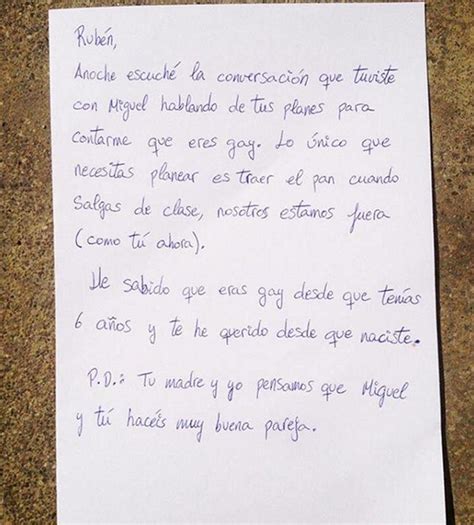 Rubén,
Anoche escuché la conversación que tuviste
con Miguel hablando de tus planes para
contarme que eres gay. Lo único que
necesitas planear es traer el pan cuando
salgas de clase, nosotros estamos fuera
(como tú ahora).
He sabido que eras gay desde que tenías
6 años y te he querido desde que naciste.
P.D.: Tu madre y yo pensamos que Miguel
y tú hacéis muy buena pareja.